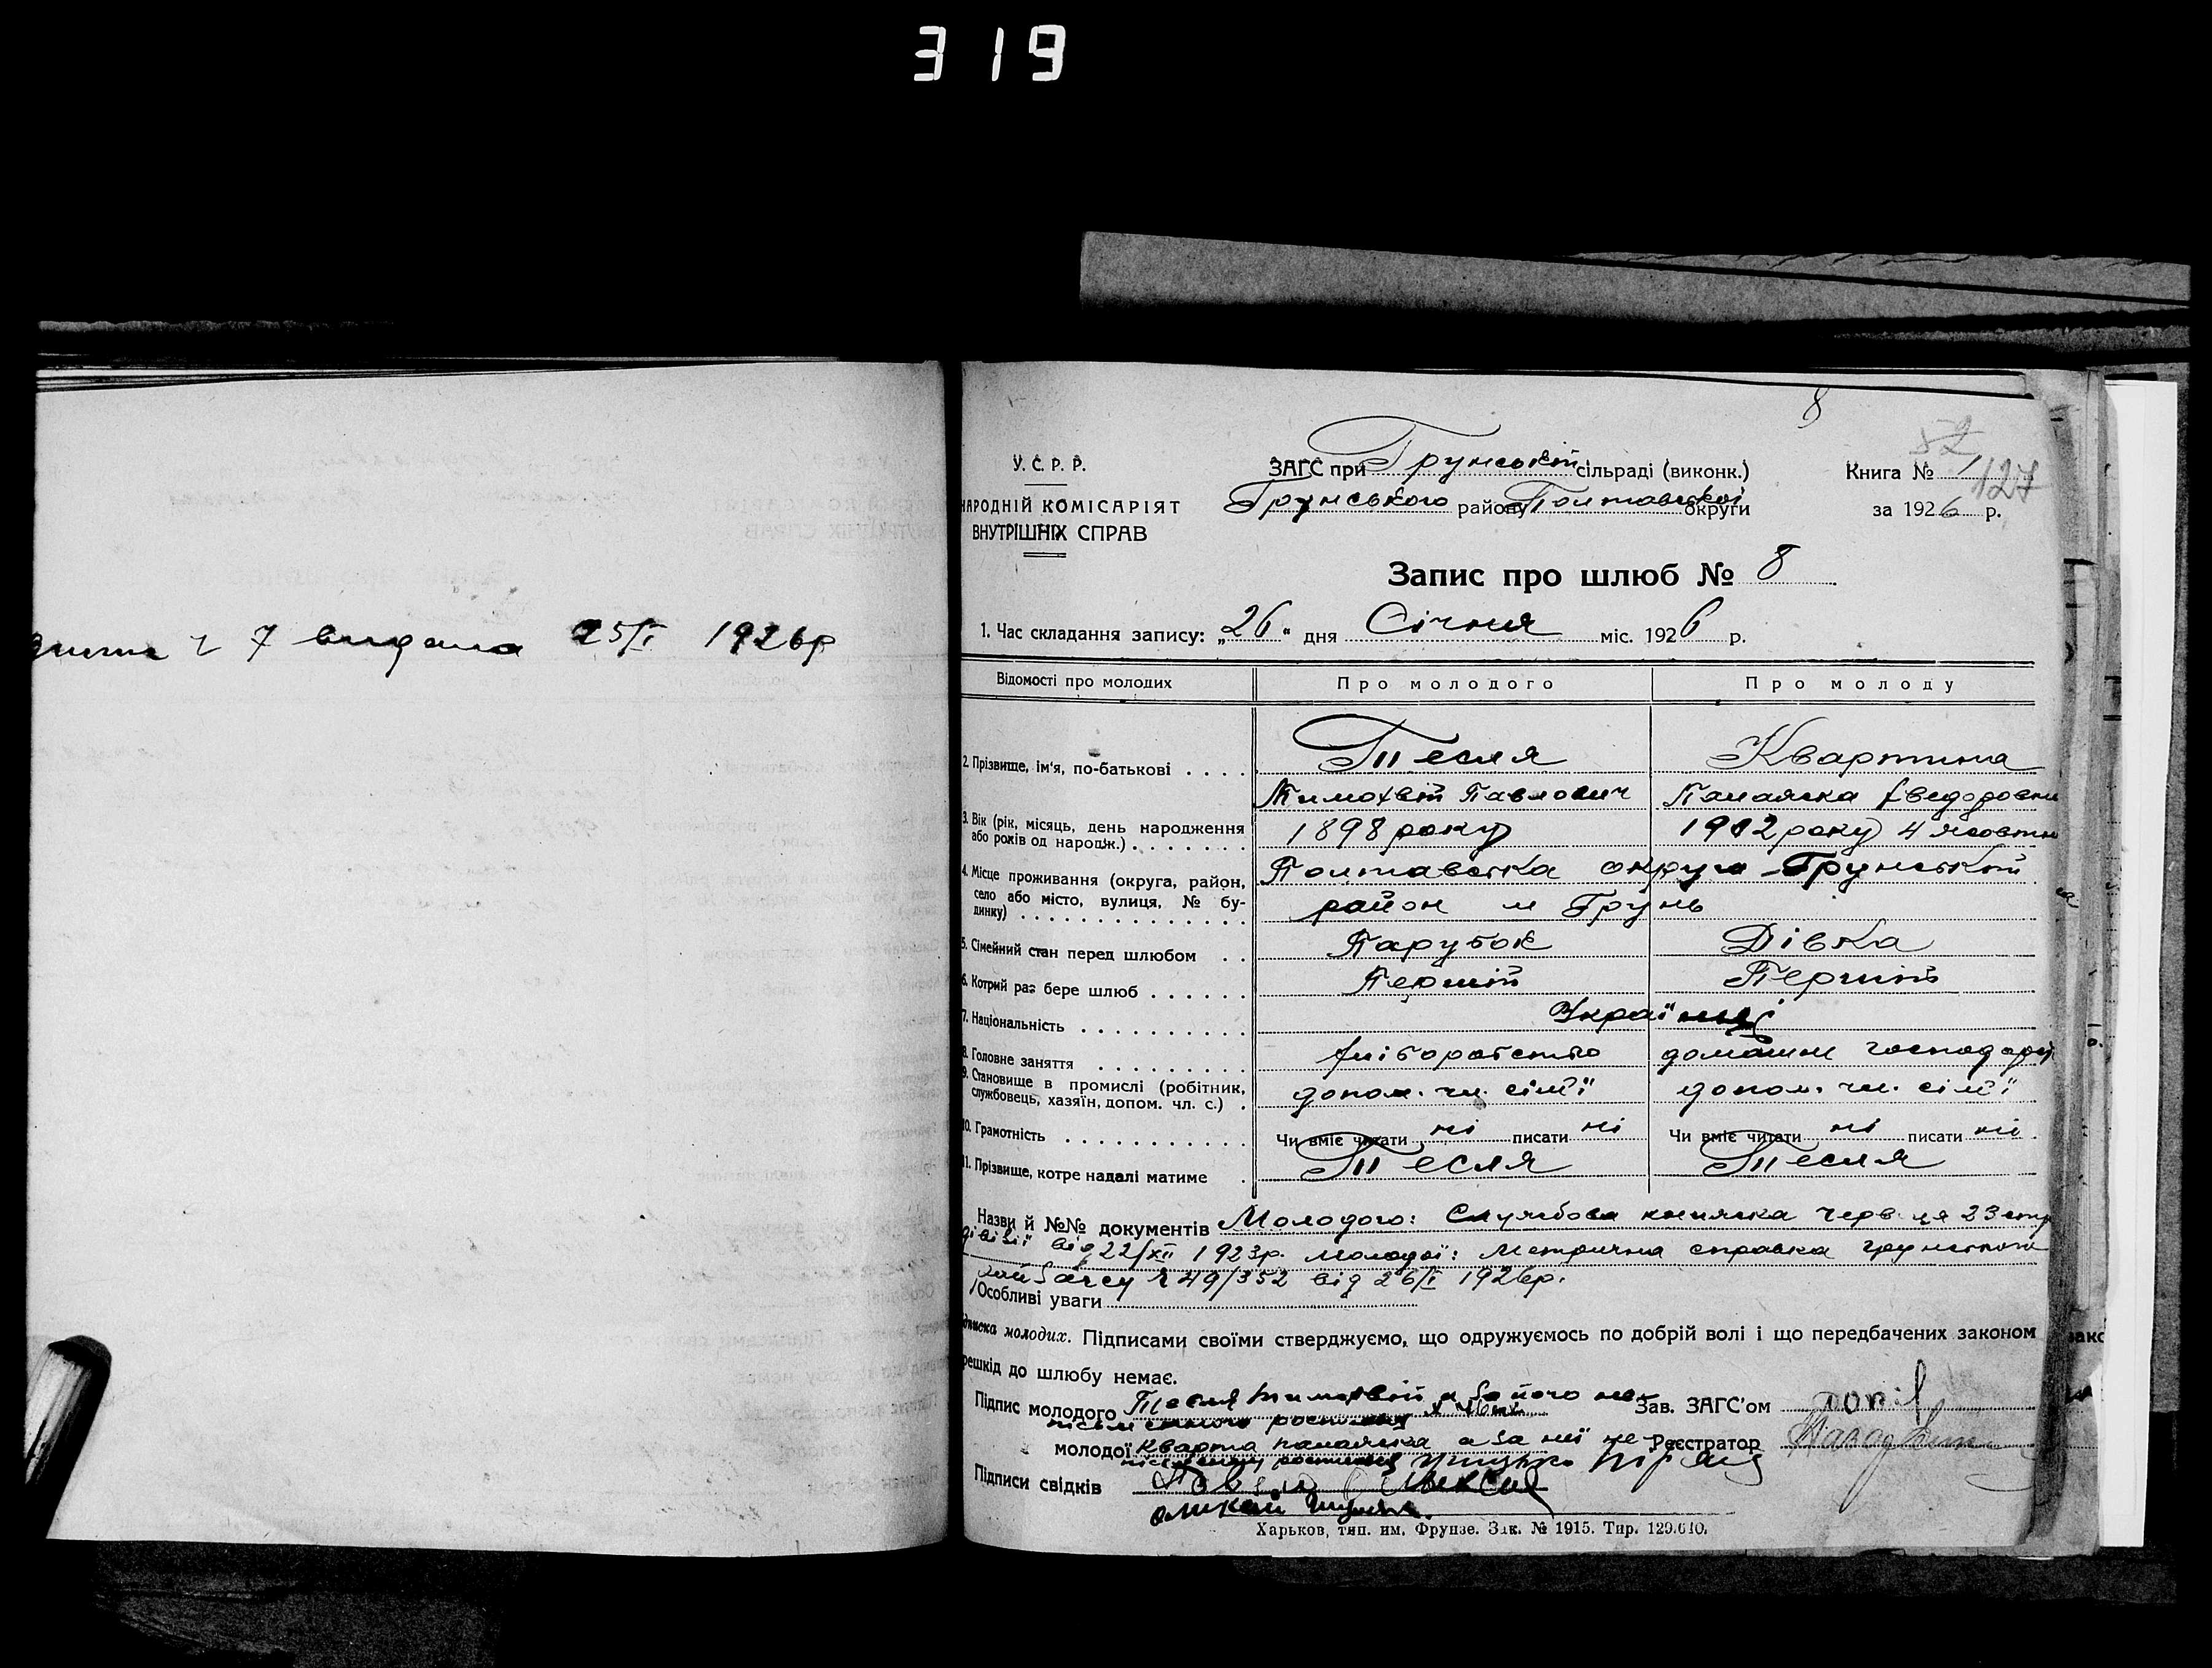 319
7 видана 25/I 1926р
8
52
127
У. С. Р. Р.
НАРОДНІЙ КОМІСАРІЯТ
ВНУТРІШНІХ СПРАВ
ЗАГС при Грунській сільраді (виконк.)
Грунського району Полтавської округи
Книга № 1
за 1926 р.
Запис про шлюб № 8
1. Час складання запису: „26" дня Січня міс. 1926 р.
Відомості про молодих Про молодого Про молоду
2. Прізвище, ім'я, по-батькові . . . . Тесля Квартина
Тимохвій Павлович Панаяска Хведоровн
3. Вік (рік, місяць, день народження або років од народж.) . . . . . . . 1898 року 1902 року 4 жовтн
4. Місце проживання (округа, район, Полтавська округа Грунський
село або місто, вулиця, № будинку) район м Грунь
5. Сімейний стан перед шлюбом . . Парубок Дівка
6. Котрий раз бере шлюб . . . . . . Перший Перший
7. Національність . . . . . . . . . . Українці
8. Головне заняття . . . . . . . . . хліборобство домашнє господарс
9. Становище в промислі (робітник, службовець, хазяїн, допом. чл. с.) . допом. чл. сім'ї допом. чл. сім'ї
10. Грамотність . . . . . . . . . . . Чи вміє читати ні писати ні Чи вміє читати ні писати ні
11. Прізвище, котре надалі матиме . Тесля Тесля
Назви й №№ документів Молодого: Службова книжка 23 стр
дівізії від 22/XII 1923р. Молодої: Метрична справка грунського
49/352 від 26/I 1926р.
Особливі уваги
підписка молодих. Підписами своїми стверджуємо, що одружуємось по добрій волі і що передбачених законом
решкід до шлюбу немає.
Підпис молодого Тесля Тимохвій а за його не- Зав. ЗАГС'ом
молодої Кварта панаяска а за неї не- Реєстратор
Підписи свідків
Харьков, тип. им. Фрунзе. Зак. № 1915. Тир. 129.610.